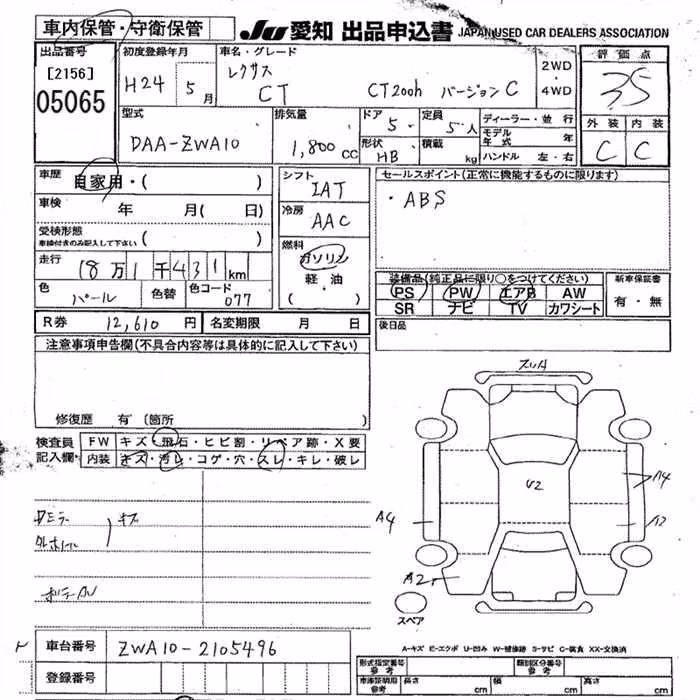 車内保管・守衛保管
JU 愛知 出品申込書 JAPAN USED CAR DEALERS ASSOCIATION
出品番号
[2156]
05065
初度登録年月
H24 5月
車名・グレード
レクサス
CT CT200h バージョンC
2WD
4WD
評価点
3.5
外装 内装
C C
型式
DAA-ZWA10
排気量
1,800 CC
ドア
5
定員
5人
形状
HB
積載
kg
ディーラー・並行
モデル年式 年
ハンドル 左・右
車歴
自家用・( )
車検 年 月( 日)
受検形態
車検付きのみ記入して下さい ( )
走行 18万1千431km
色 パール 色替 色コード 077
シフト
IAT
冷房
AAC
燃料
ガソリン
軽油
( )
セールスポイント(正常に機能するものに限ります)
・ABS
装備品(純正品に限り○をつけてください)
PS PW エアB AW
SR ナビ TV カワシート
新車保証書
有・無
後日品
R券 12,610円 名変期限 月 日
注意事項申告欄(不具合内容等は具体的に記入して下さい)
修復歴 有(箇所 )
検査員記入欄
FW キズ・飛石・ヒビ割・リペア跡・X要
内装 キズ・汚レ・コゲ・穴・スレ・キレ・破レ
キズ
スリキ
U2
A4
A4
A2
A2
スペア
車台番号 ZWA10-2105496
登録番号
A-キズ E-エクボ U-凹み W-補修跡 S-サビ C-腐食 XX-交換済
形式指定番号 参考
類別区分番号 参考
車庫証明用 参考 長さ cm 幅 cm 高さ cm